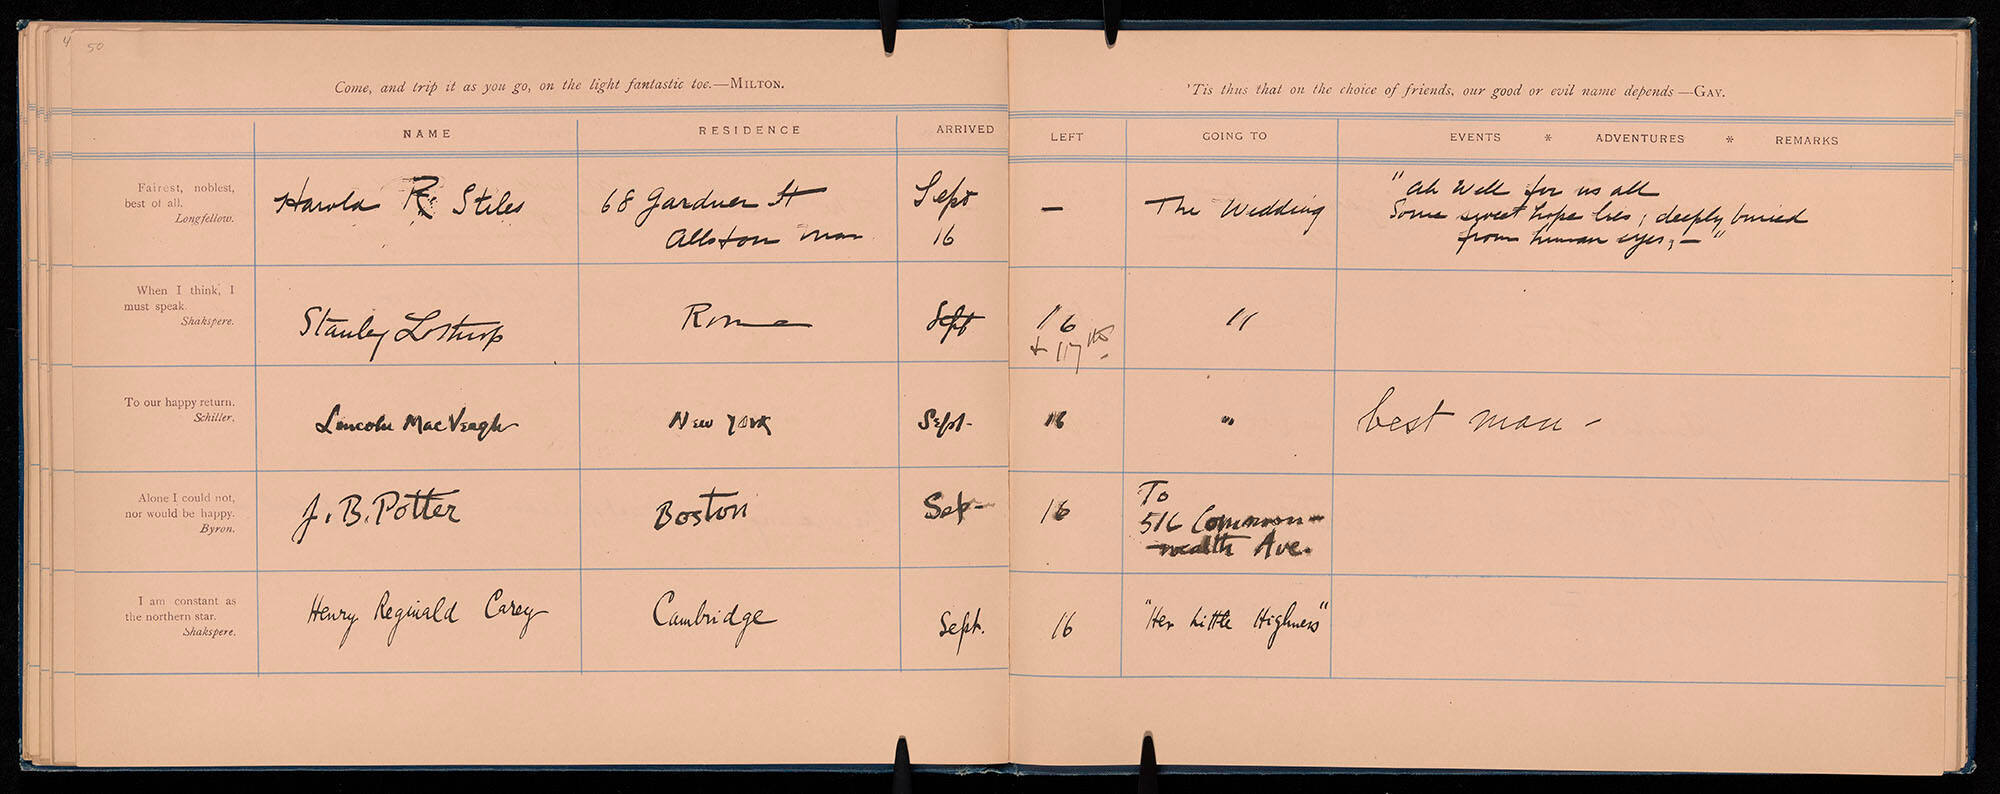 4 50
Come, and trip it as you go, on the light fantastic toe.—MILTON.
'Tis thus that on the choice of friends, our good or evil name depends—GAY.
NAME RESIDENCE ARRIVED LEFT GOING TO EVENTS * ADVENTURES * REMARKS
Fairest, noblest,
best of all.
Longfellow.
Harold R. Stiles
68 Gardner St
Allston Mass
Sept
16
—
The Wedding
"Ah Well for us all
Some sweet hope lies; deeply buried
from human eyes,—"
When I think, I
must speak.
Shakspere.
Stanley Lothrop
Rome
Sept
16
+ 17th
"
To our happy return.
Schiller.
Lincoln MacVeagh
New York
Sept-
16
"
best man -
Alone I could not,
nor would be happy.
Byron.
J. B. Potter
Boston
Sept-
16
To
516 Common-
-wealth Ave.
I am constant as
the northern star.
Shakspere.
Henry Reginald Carey
Cambridge
Sept.
16
"Her Little Highness"